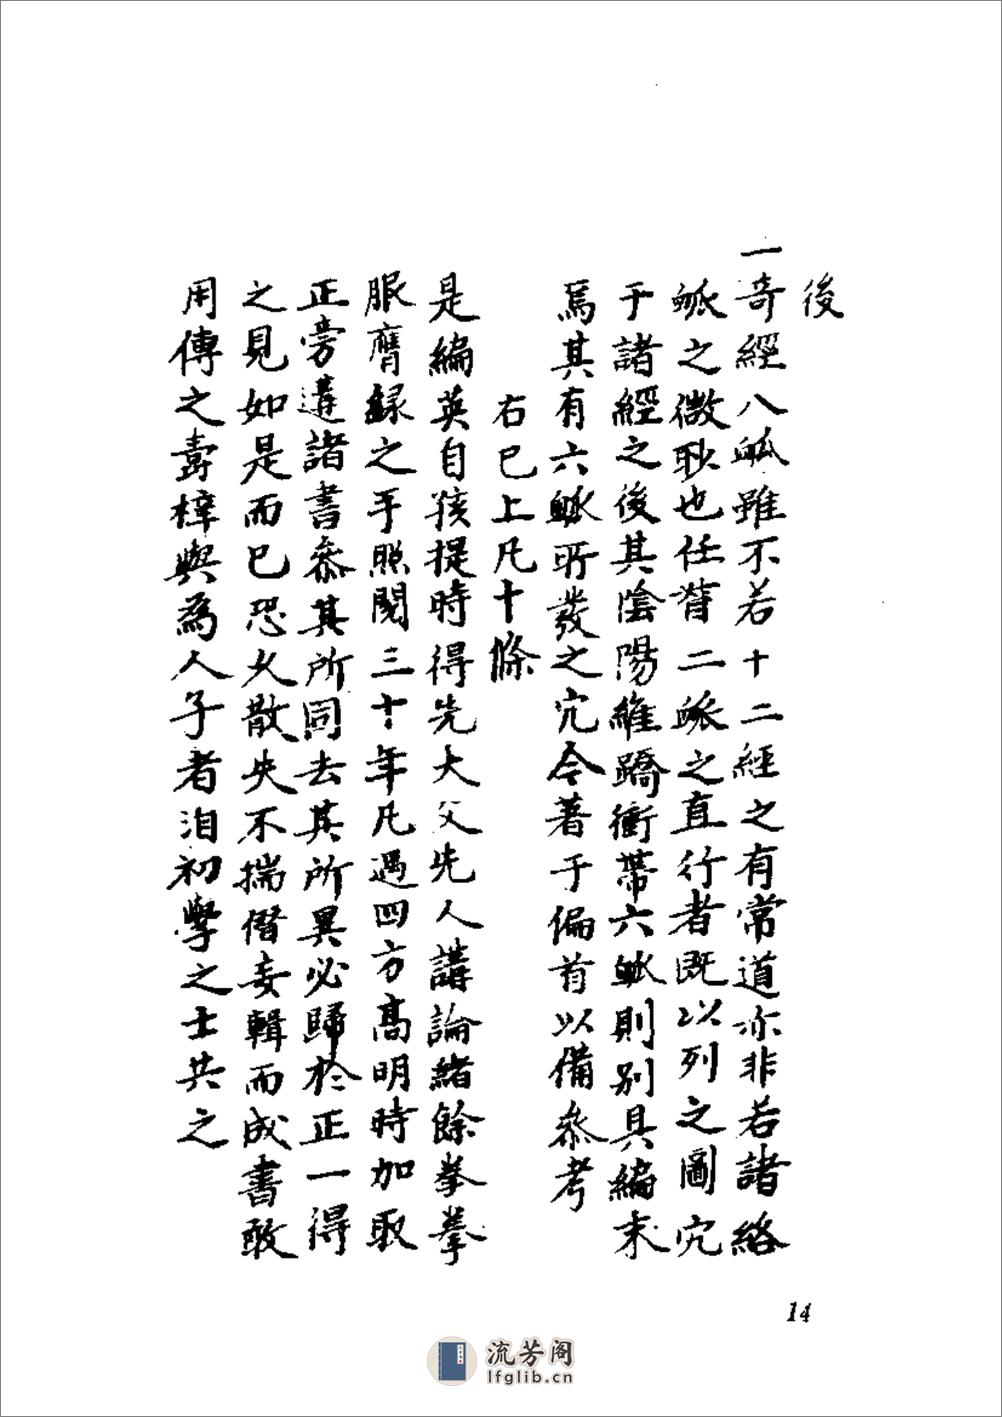 後
一奇經八衇雖不若十二經之有常道亦非若諸絡
衇之微眇也任督二衇之直行者既以列之圖穴
于諸經之後其陰陽維蹻衝帶六衇則別具編末
焉其有六衇所發之穴今著于偏首以備叅考
右已上凡十條
是編英自孩提時得先大父先人講論緒餘拳拳
服膺録之手照閱三十年凡遇四方高明時加取
正旁遘諸書叅其所同去其所異必歸於正一得
之見如是而已恐久散失不揣僭妄輯而成書敢
用傳之壽梓與為人子者洎初學之士共之
14
流芳阁
lfglib.cn